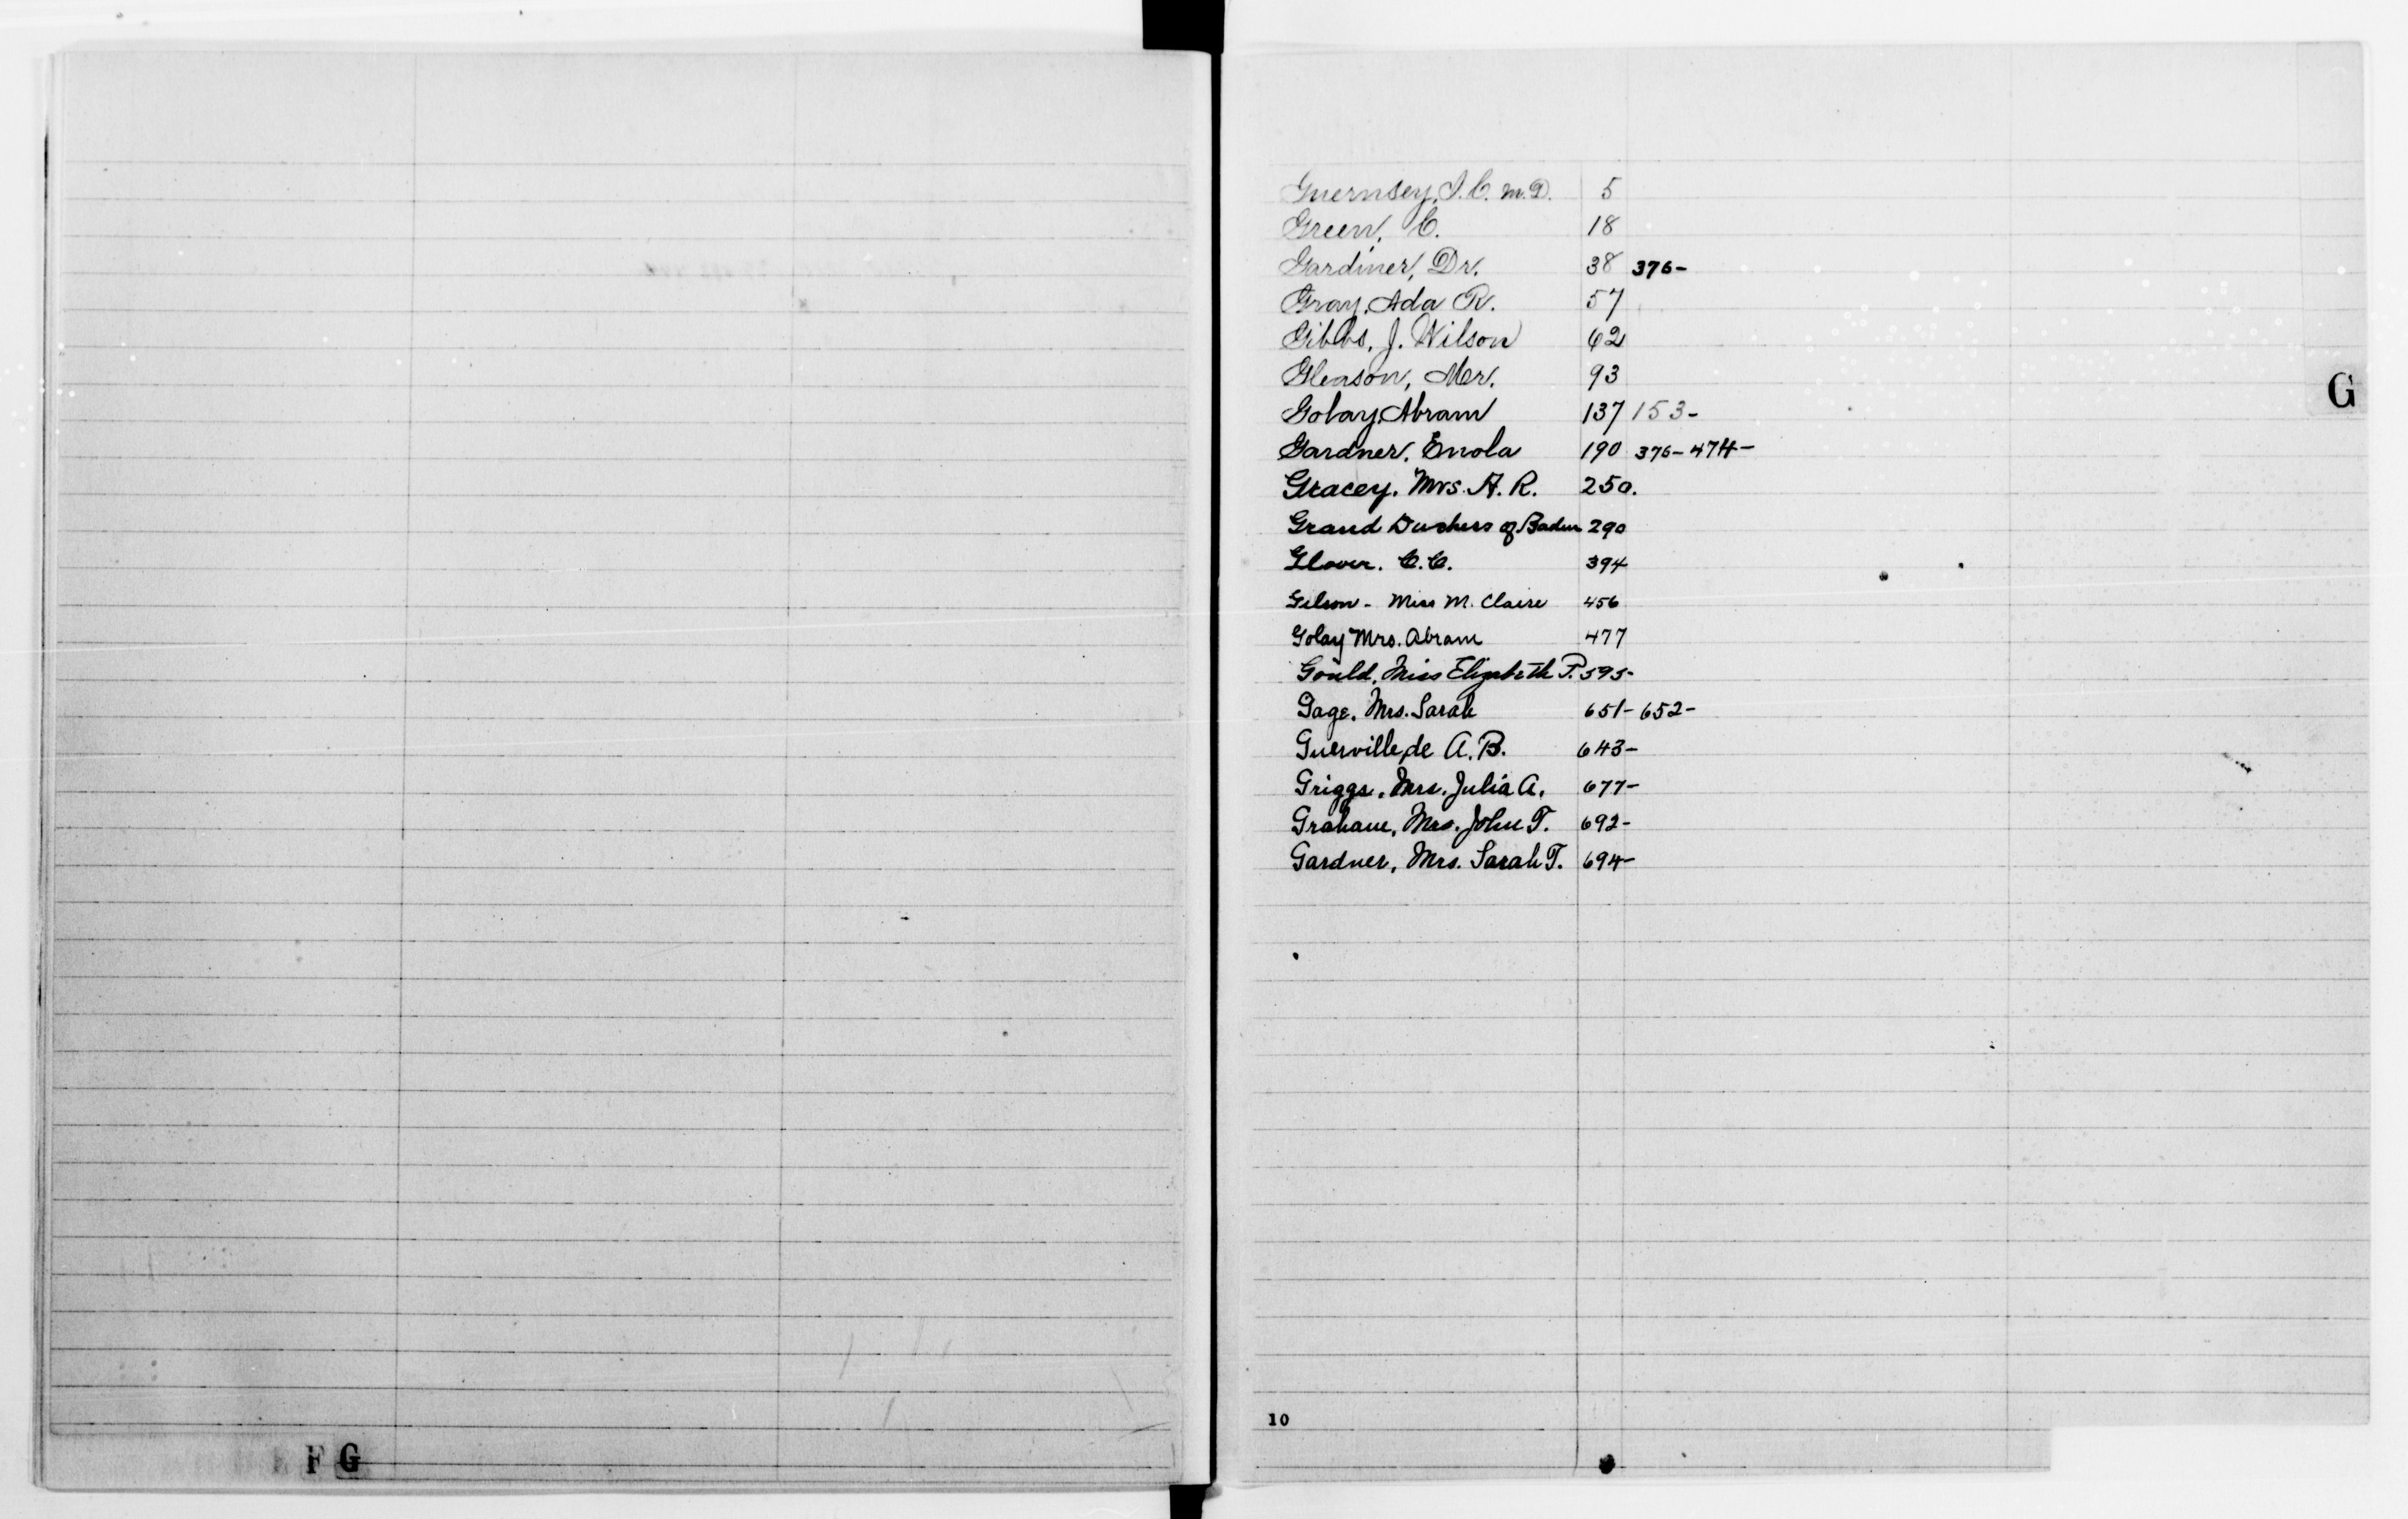 F G
Guernsey, J. C. M.D. 5
Green, C. 18
Gardiner, Dr. 38 376-
Gray, Ada R. 57
Gibbs, J. Wilson 62
Gleason, Mr. 93
Golay, Abram 137 153-
Gardner, Enola 190 376-474-
Gracey, Mrs. A. R. 250.
Grand Duchess of Baden 290
Glover. C. C. 394
Gilson - Miss M. Claire 456
Golay Mrs. Abram 477
Gould, Miss Elizabeth P. 595-
Gage, Mrs. Sarah 651-652-
Guerville, de A. B. 643-
Griggs, Mrs. Julia A. 677-
Graham, Mrs. John T. 692-
Gardner, Mrs. Sarah T. 694-
G
10